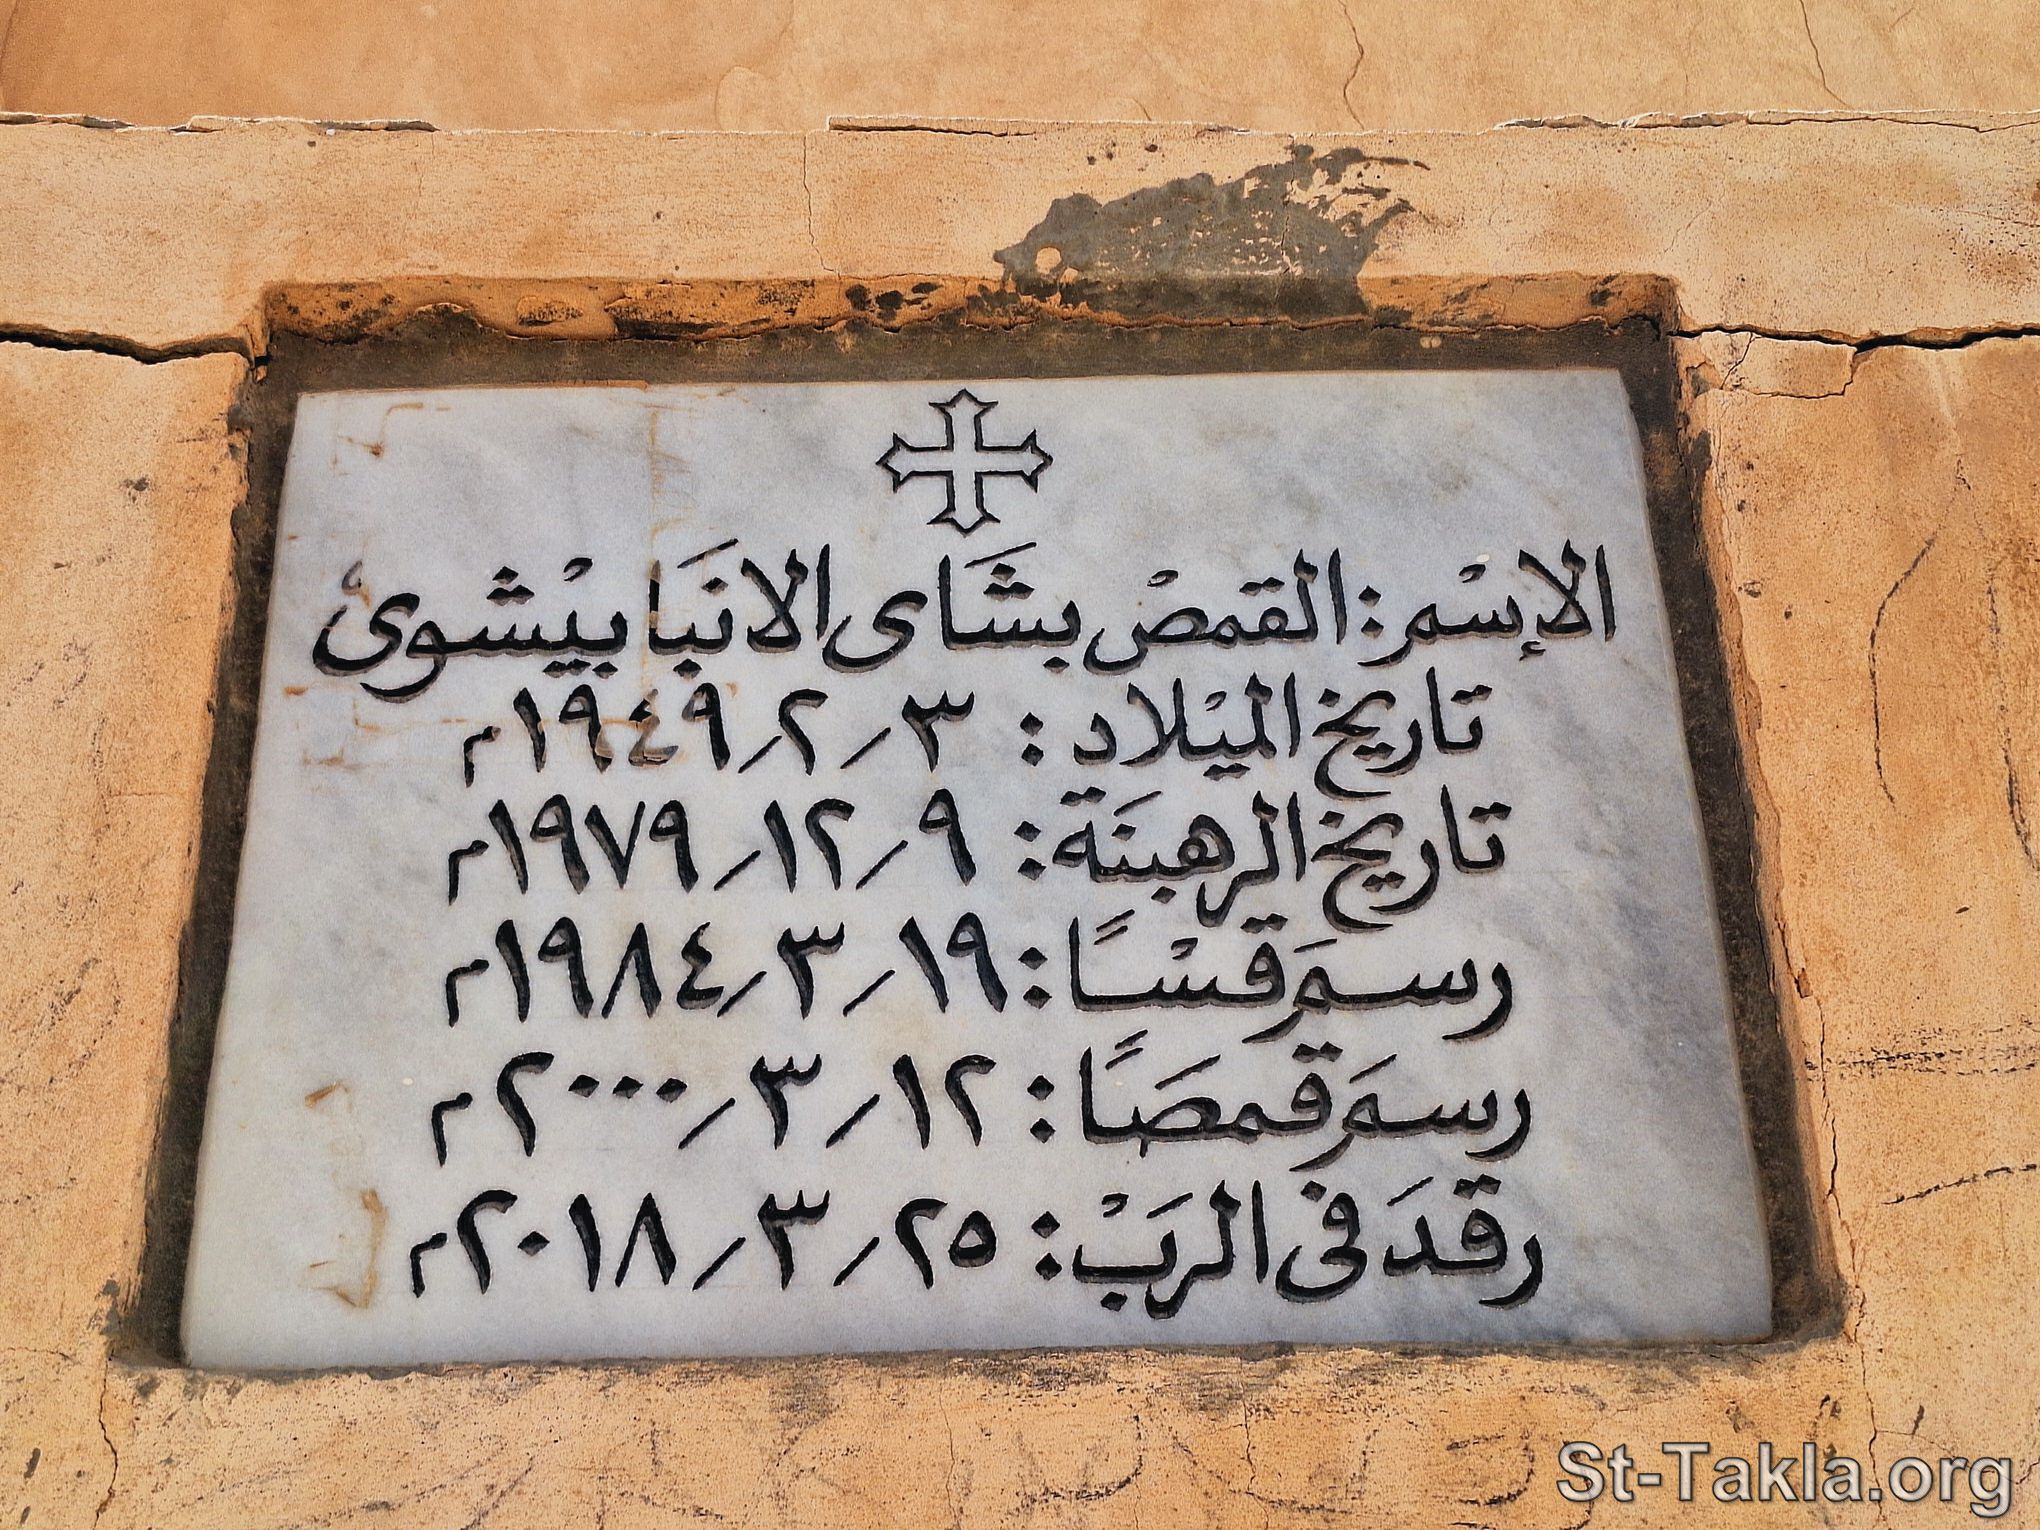 الإسْم: القمصْ بشَاى الانبَا بيْشوى
تاريخ الميْلاد: ٣/٢/١٩٤٩م
تاريخ الرهبنَة: ٩/١٢/١٩٧٩م
رسمَ قسْاً: ١٩/٣/١٩٨٤م
رسمَ قمصَاً: ١٢/٣/٢٠٠٠م
رقدَ فى الربَْ: ٢٥/٣/٢٠١٨م
St-Takla.org